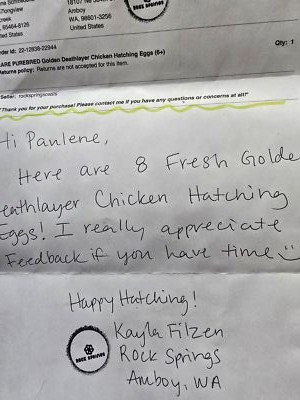 Longview
95464-8126
United States
Amboy
WA, 98601-3256
United States
ROCK SPRINGS
rder id: 22-12838-22944
Qty: 1
ARE PUREBRED Golden Deathlayer Chicken Hatching Eggs (6+)
Returns policy: Returns are not accepted for this item.
Seller: rockspringscoasts
"Thank you for your purchase! Please contact me if you have any questions or concerns at all!"
Hi Paulene,
Here are 8 Fresh Golde
eathlayer Chicken Hatching
Eggs! I really appreciate
Feedback if you have time
Happy Hatching!
Kayla Filzen
Rock Springs
Amboy, WA
ROCK SPRINGS